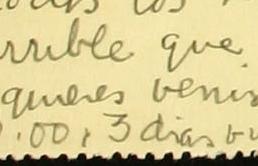 los
rrible que
quieres venir
.00, 3 dias